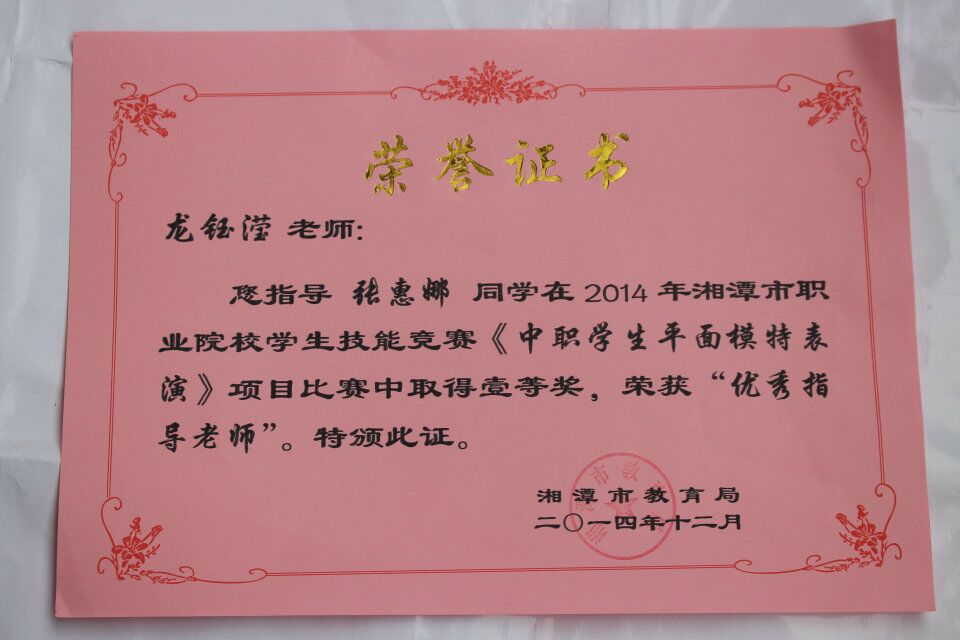 荣誉证书
龙钰滢 老师：
您指导 张惠娜 同学在 2014 年湘潭市职
业院校学生技能竞赛《中职学生平面模特表
演》项目比赛中取得壹等奖，荣获“优秀指
导老师”。特颁此证。
湘潭市教育局
二〇一四年十二月